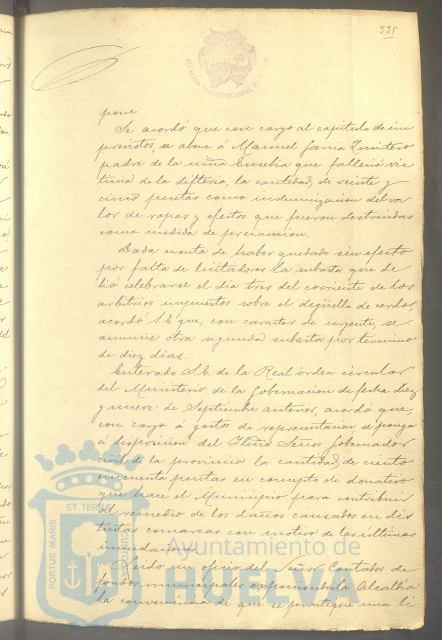 335
pone
Se acordó que con cargo al capitulo de im
previstos, se abone á Manuel Garcia Quintero
padre de la niña Eusebia que falleció vic
tima de la difteria, la cantidad de veinte y
cinco pesetas como indemnizacion del va
lor de ropas y efectos que fueron destruidos
como medida de precaucion.
Dada cuenta de haber quedado sin efecto
por falta de licitadores la subasta que de
bió celebrarse el dia tres del corriente de los
arbitrios impuestos sobre el degüello de cerdos,
acordó S.E. que, con caracter de urgente, se
anuncie otra segunda subasta por término
de diez dias.
Enterado S.E. de la Real orden circular
del Ministerio de la Gobernacion de fecha diez
y nueve de Septiembre anterior, acordó que,
con cargo á gastos de representacion se ponga
á disposicion del Iltmo Señor Gobernador
civil de la provincia la cantidad de ciento
cincuenta pesetas en concepto de donativo
que hace el Municipio para contribuir
al remedio de los daños causados en dis
tintas comarcas con motivo de las últimas
inundaciones
Leido un oficio del Señor Contador de
fondos municipales exponiendo á la Alcaldia
la conveniencia de que se practique una li
PORTUS MARIS ET TERRAE CUSTODIA
Ayuntamiento de
HUELVA